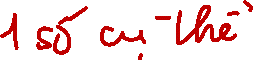 1 số cụ thể